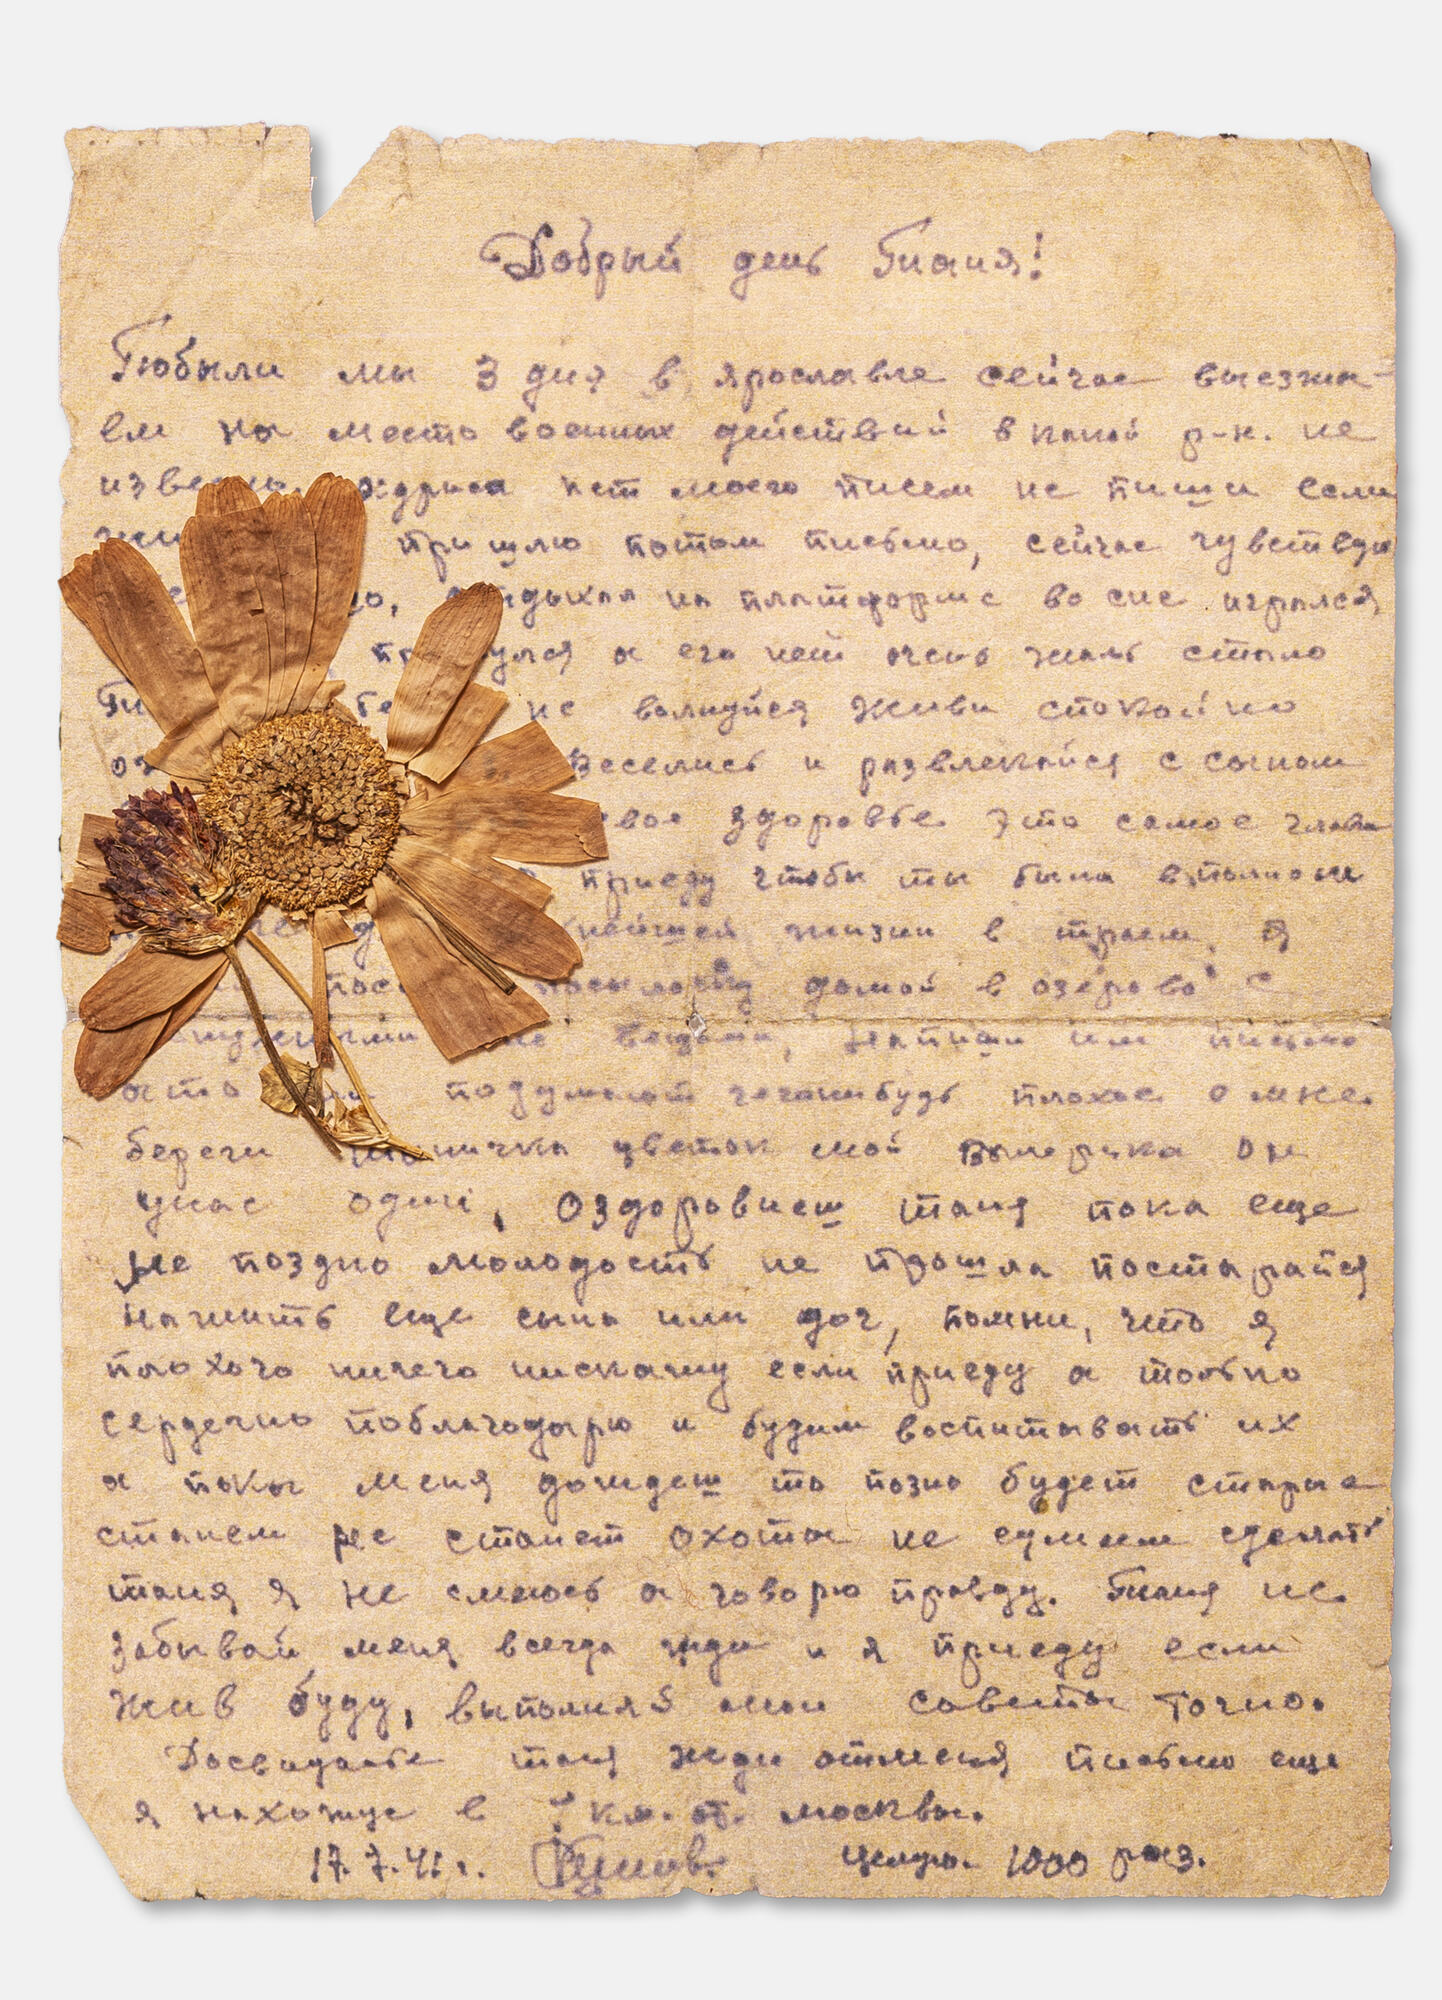 Добрый день Таня!
Побыли мы 3 дня в ярославле сейчас выезжа-
ем на место военных действий в какой р-н. не
нет моего писем не пиши если
пришлю потом письмо, сейчас чувствую
на платформе во сне игрался
а его нет очень жаль стало
не волнуйся живи спокойно
веселись и развлекайся с сыном
здоровье это самое главн
приеду чтобы ты была
жизни в троем, я
посылочку домой в озерово с
вещами, напиши им письмо
подумают чегонибудь плохое о мне.
береги цветок мой Валерика он
унас один, Оздоровиеш таня пока еще
не поздно молодость не прошла постарайся
нажить еще сына или доч, помни, что я
плохого ничего нискажу если приеду а только
сердечно поблагодарю и будим воспитывать их
а пока меня дождеш то позно будет старые
станем не станет охоты не сумеем сделать
таня я не смеюсь а говорю правду. Таня не
забывай меня всегда жди и я приеду если
жив буду, выполняй мои советы точно.
Досвидание таня жди отменя письмо еще
я нахожус в км. от. москвы.
17.7.41 г. целую. 1000 раз.